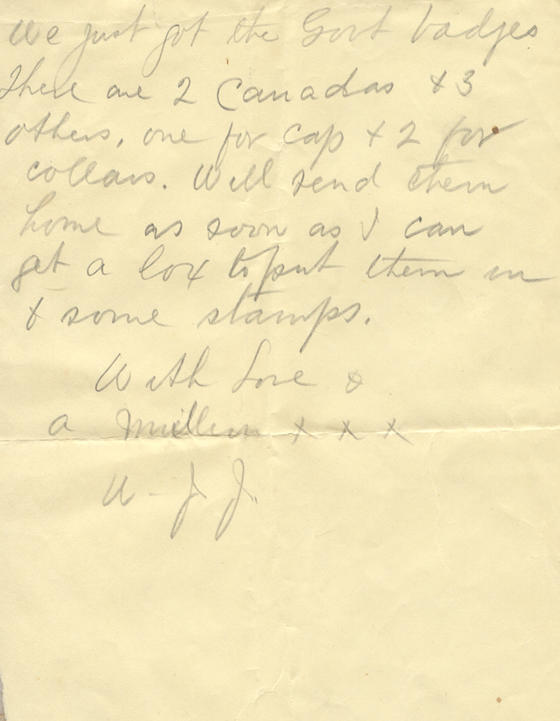 We just got the Govt badges
There are 2 Canadas & 3
others, one for cap & 2 for
collars. Will send them
home as soon as I can
get a box to put them in
& some stamps.
With Love &
a Million x x x
W. J. J.